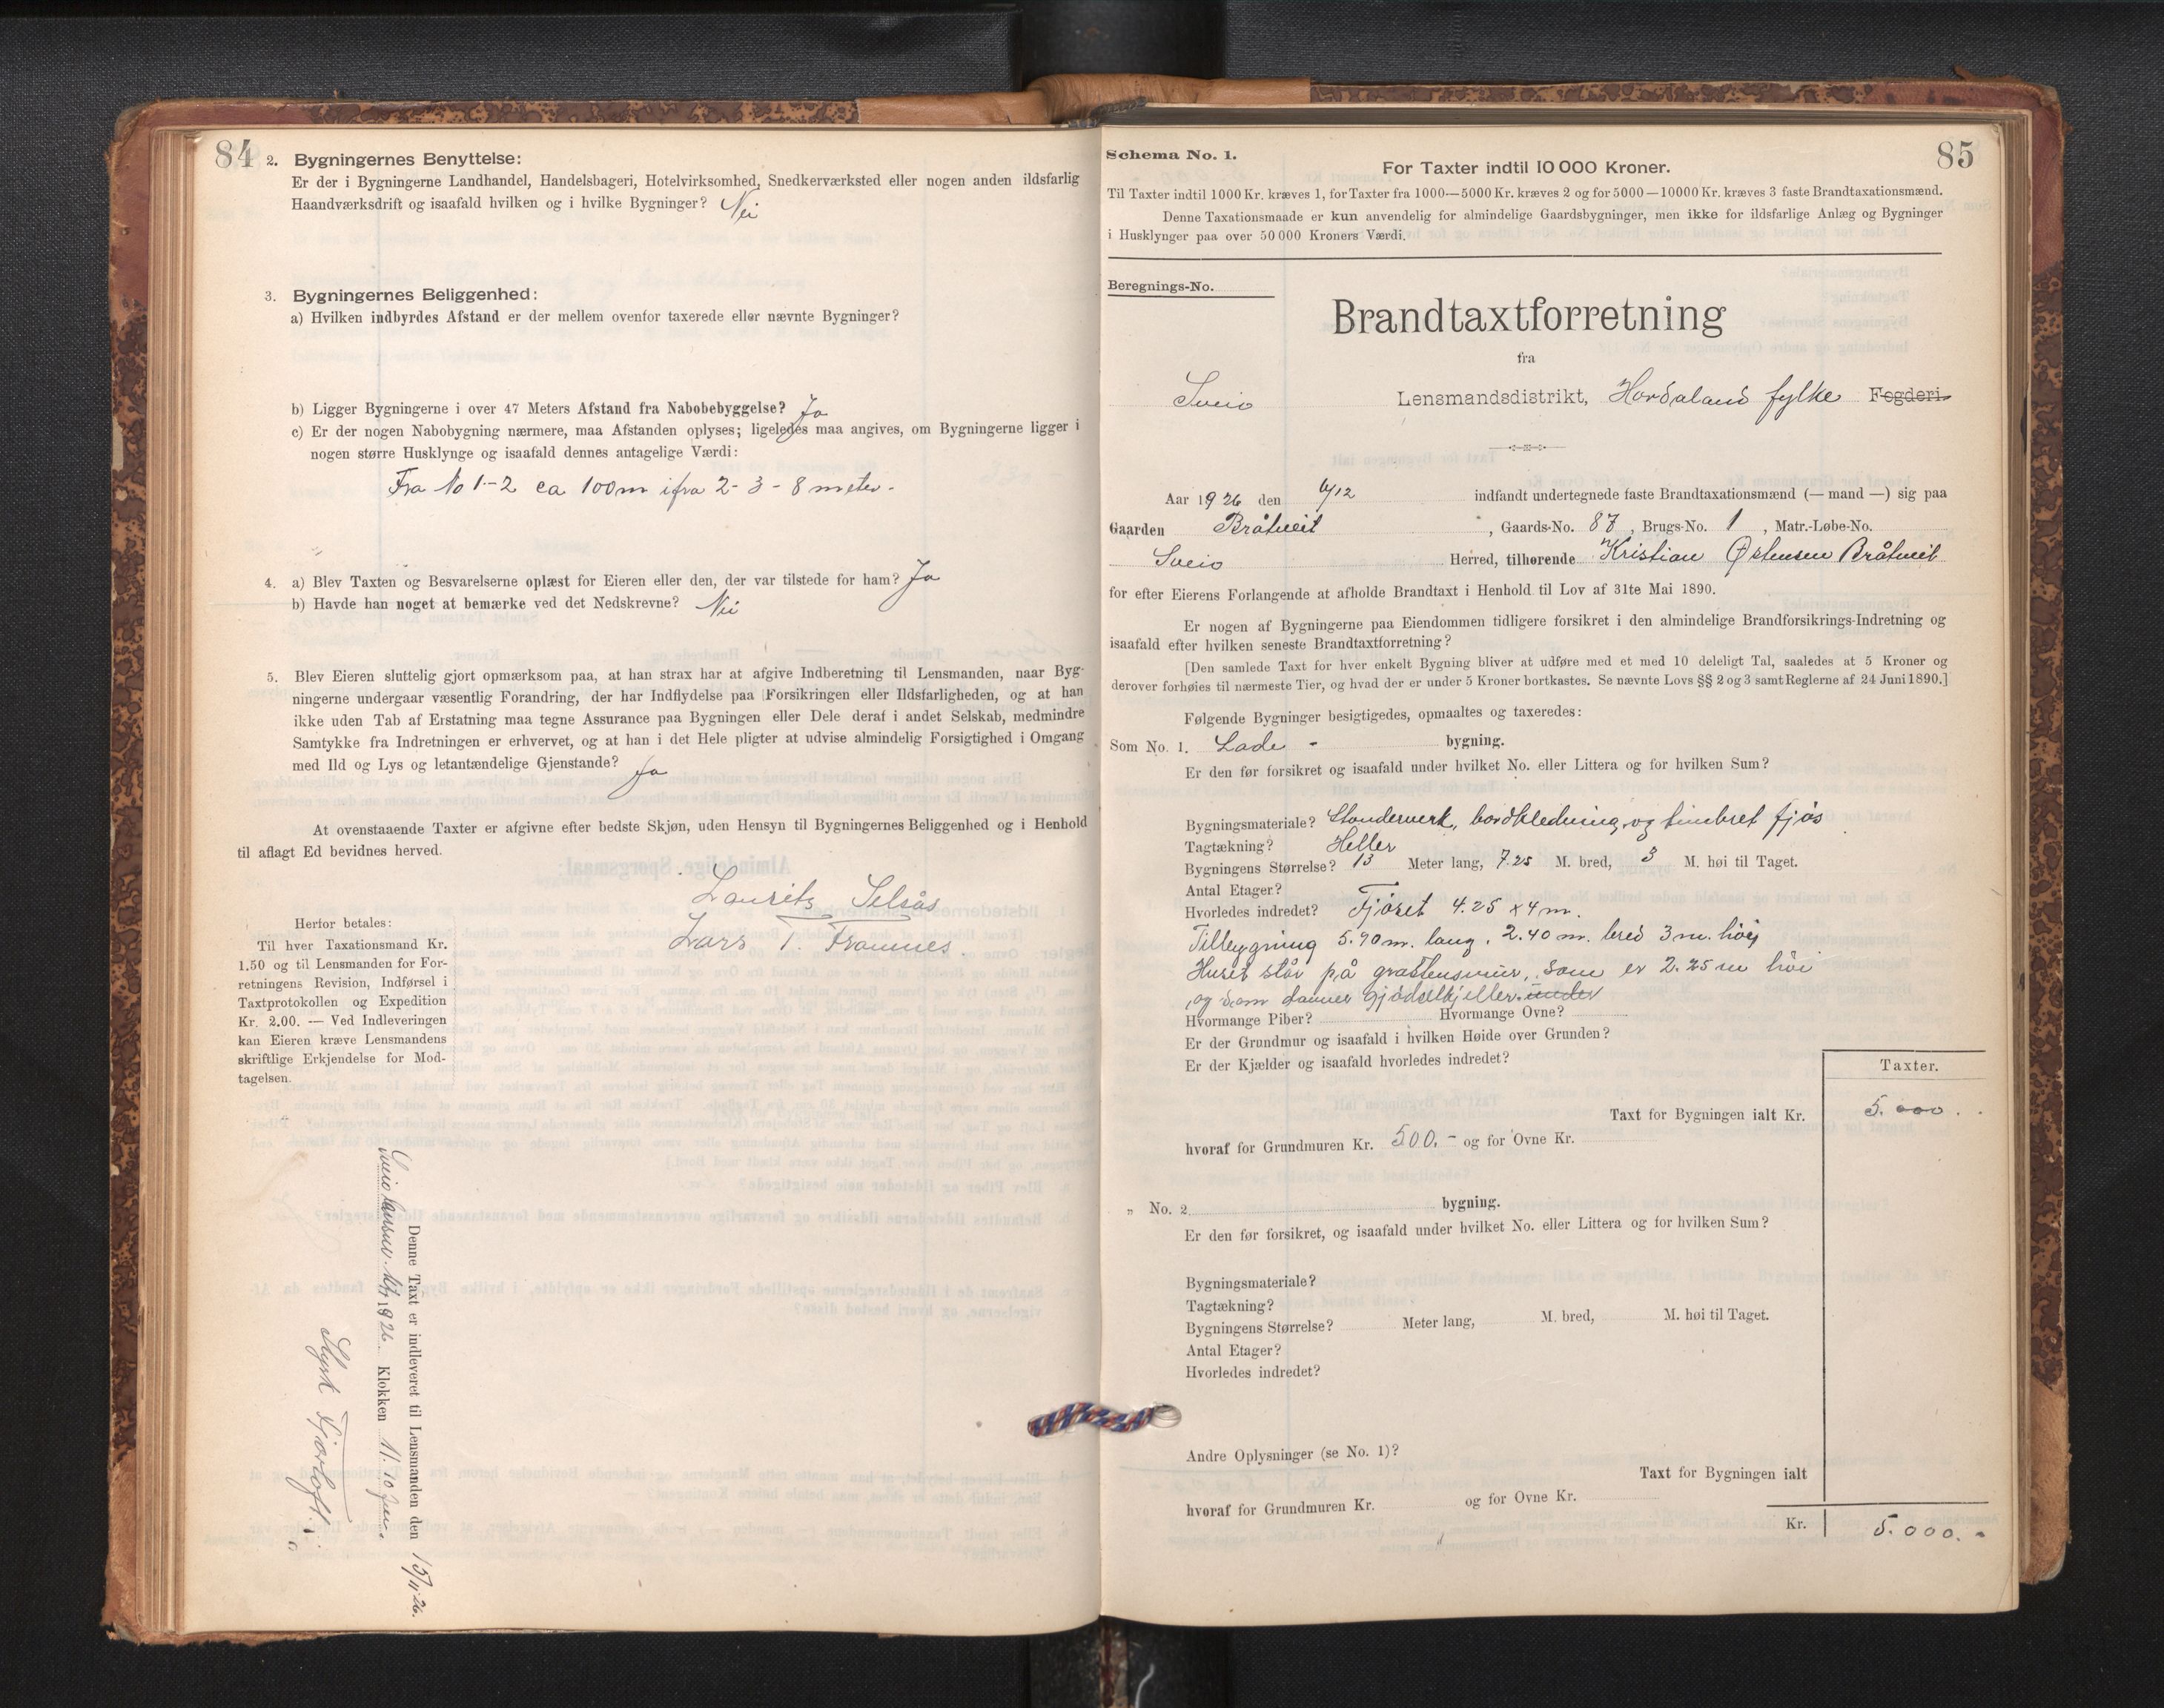 84
2. Bygningernes Benyttelse:
Er der i Bygningerne Landhandel, Handelsbageri, Hotelvirksomhed, Snedkerværksted eller nogen anden ildsfarlig
Haandværksdrift og isaafald hvilken og i hvilke Bygninger? Nei
3. Bygningernes Beliggenhed:
a) Hvilken indbyrdes Afstand er der mellem ovenfor taxerede eller nævnte Bygninger?
b) Ligger Bygningerne i over 47 Meters Afstand fra Nabobebyggelse? Ja
c) Er der nogen Nabobygning nærmere, maa Afstanden oplyses; ligeledes maa angives, om Bygningerne ligger i
nogen større Husklynge og isaafald dennes antagelige Værdi:
Fra No 1-2 ca 100m ifra 2-3-8 meter.
4. a) Blev Taxten og Besvarelserne oplæst for Eieren eller den, der var tilstede for ham? Ja
b) Havde han noget at bemærke ved det Nedskrevne? Nei
5. Blev Eieren sluttelig gjort opmærksom paa, at han strax har at afgive Indberetning til Lensmanden, naar Byg-
ningerne undergaar væsentlig Forandring, der har Indflydelse paa Forsikringen eller Ildsfarligheden, og at han
ikke uden Tab af Erstatning maa tegne Assurance paa Bygningen eller Dele deraf i andet Selskab, medmindre
Samtykke fra Indretningen er erhvervet, og at han i det Hele pligter at udvise almindelig Forsigtighed i Omgang
med Ild og Lys og letantændelige Gjenstande? Ja
At ovenstaaende Taxter er afgivne efter bedste Skjøn, uden Hensyn til Bygningernes Beliggenhed og i Henhold
til aflagt Ed bevidnes herved.
Lauritz Selsås
Lars T. Framnes.
Herfor betales:
Til hver Taxationsmand Kr.
1.50 og til Lensmanden for For-
retningens Revision, Indførsel i
Taxtprotokollen og Expedition
Kr. 2.00. — Ved Indleveringen
kan Eieren kræve Lensmandens
skriftlige Erkjendelse for Mod-
tagelsen.
Denne Taxt er indleveret til Lensmanden den 15/1 26.
Sveio 1926 Klokken 11.10
85
Schema No. 1.
For Taxter indtil 10 000 Kroner.
Til Taxter indtil 1000 Kr. kræves 1, for Taxter fra 1000—5000 Kr. kræves 2 og for 5000—10000 Kr. kræves 3 faste Brandtaxationsmænd.
Denne Taxationsmaade er kun anvendelig for almindelige Gaardsbygninger, men ikke for ildsfarlige Anlæg og Bygninger
i Husklynger paa over 50 000 Kroners Værdi.
Beregnings-No.
Brandtaxtforretning
fra
Sveio Lensmandsdistrikt, Hordaland fylke Fogderi
Aar 1926 den 6/12 indfandt undertegnede faste Brandtaxationsmænd (— mand —) sig paa
Gaarden Bråtveit, Gaards-No. 87, Brugs-No. 1, Matr.-Løbe-No.
Sveio Herred, tilhørende Kristian Østensen Bråtveit
for efter Eierens Forlangende at afholde Brandtaxt i Henhold til Lov af 31te Mai 1890.
Er nogen af Bygningerne paa Eiendommen tidligere forsikret i den almindelige Brandforsikrings-Indretning og
isaafald efter hvilken seneste Brandtaxtforretning?
[Den samlede Taxt for hver enkelt Bygning bliver at udføre med et med 10 deleligt Tal, saaledes at 5 Kroner og
derover forhøies til nærmeste Tier, og hvad der er under 5 Kroner bortkastes. Se nævnte Lovs §§ 2 og 3 samt Reglerne af 24 Juni 1890.]
Følgende Bygninger besigtigedes, opmaaltes og taxeredes:
Som No. 1. Lade - bygning.
Er den før forsikret og isaafald under hvilket No. eller Littera og for hvilken Sum?
Bygningsmateriale? Stenderverk, bordkledning, og timbret fjøs
Tagtækning? Heller
Bygningens Størrelse? 13 Meter lang, 7.25 M. bred, 3 M. høi til Taget.
Antal Etager?
Hvorledes indredet? Fjøset 4.25 x 4 m.
Tilbygning 5.90 m. lang. 2.40 m. bred 3 m. høi
Huset står på gråstensmur, som er 2.25 m høi
og som danner gjødselkjeller. under
Hvormange Piber? Hvormange Ovne?
Er der Grundmur og isaafald i hvilken Høide over Grunden?
Er der Kjælder og isaafald hvorledes indredet?
Taxter.
Taxt for Bygningen ialt Kr. 5.000.
hvoraf for Grundmuren Kr. 500.- og for Ovne Kr.
„ No. 2 bygning.
Er den før forsikret, og isaafald under hvilket No. eller Littera og for hvilken Sum?
Bygningsmateriale?
Tagtækning?
Bygningens Størrelse? Meter lang, M. bred, M. høi til Taget.
Antal Etager?
Hvorledes indredet?
Andre Oplysninger (se No. 1)?
Taxt for Bygningen ialt
hvoraf for Grundmuren Kr. og for Ovne Kr.
Kr. 5.000.-